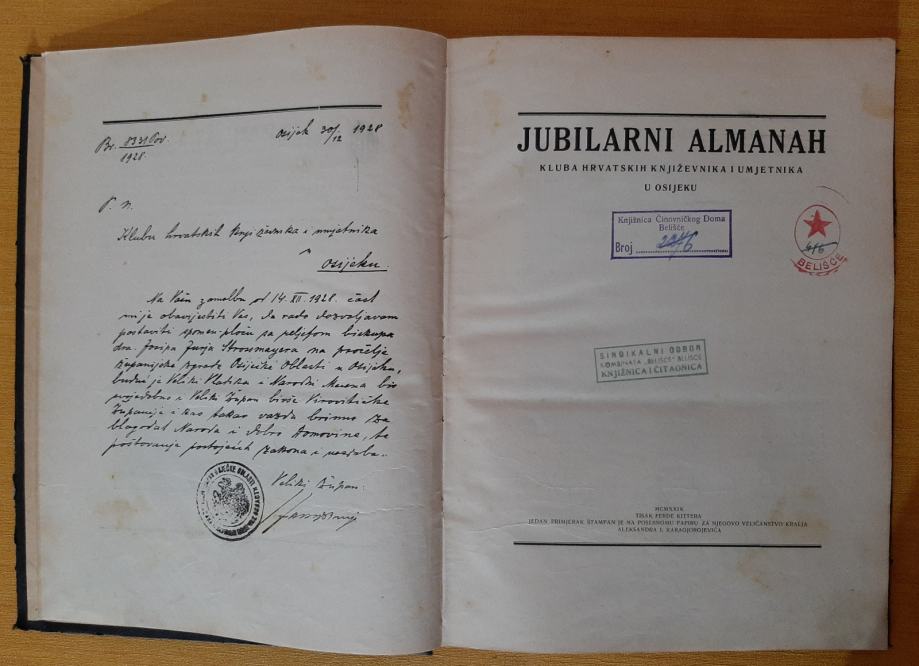 Br. 8331 Pov.
1928.
Osijek 30/12 1928
P. n.
Klubu hrvatskih književnika i umjetnika
Osijeku.
Na Vašu zamolbu od 14. XII. 1928. čast
mi je obavijestiti Vas, da rado dozvoljavam
postaviti spomen-ploču sa reljefom biskupa
dra. Josipa Jurja Strossmayera na pročelje
županijske zgrade Osječke Oblasti u Osijeku,
budući je Veliki Vladika i Narodni Mecena bio
svojedobno i Veliki Župan bivše Virovitičke
Županije i kao takav vazda brinuo za
blagodat Naroda i dobro Domovine, te
poštovanje postojećih zakona i uredaba.
Veliki Župan:
JUBILARNI ALMANAH
KLUBA HRVATSKIH KNJIŽEVNIKA I UMJETNIKA
U OSIJEKU
Knjižnica Činovničkog Doma
Belišće
Broj
646
BELIŠĆE
SINDIKALNI ODBOR
KOMBINATA „BELIŠĆE“ BELIŠĆE
KNJIŽNICA I ČITAONICA
MCMXXIX
TISAK FERDE KITTERA
JEDAN PRIMJERAK ŠTAMPAN JE NA POSEBNOMU PAPIRU ZA NJEGOVO VELIČANSTVO KRALJA
ALEKSANDRA I. KARAGJORGJEVIĆA